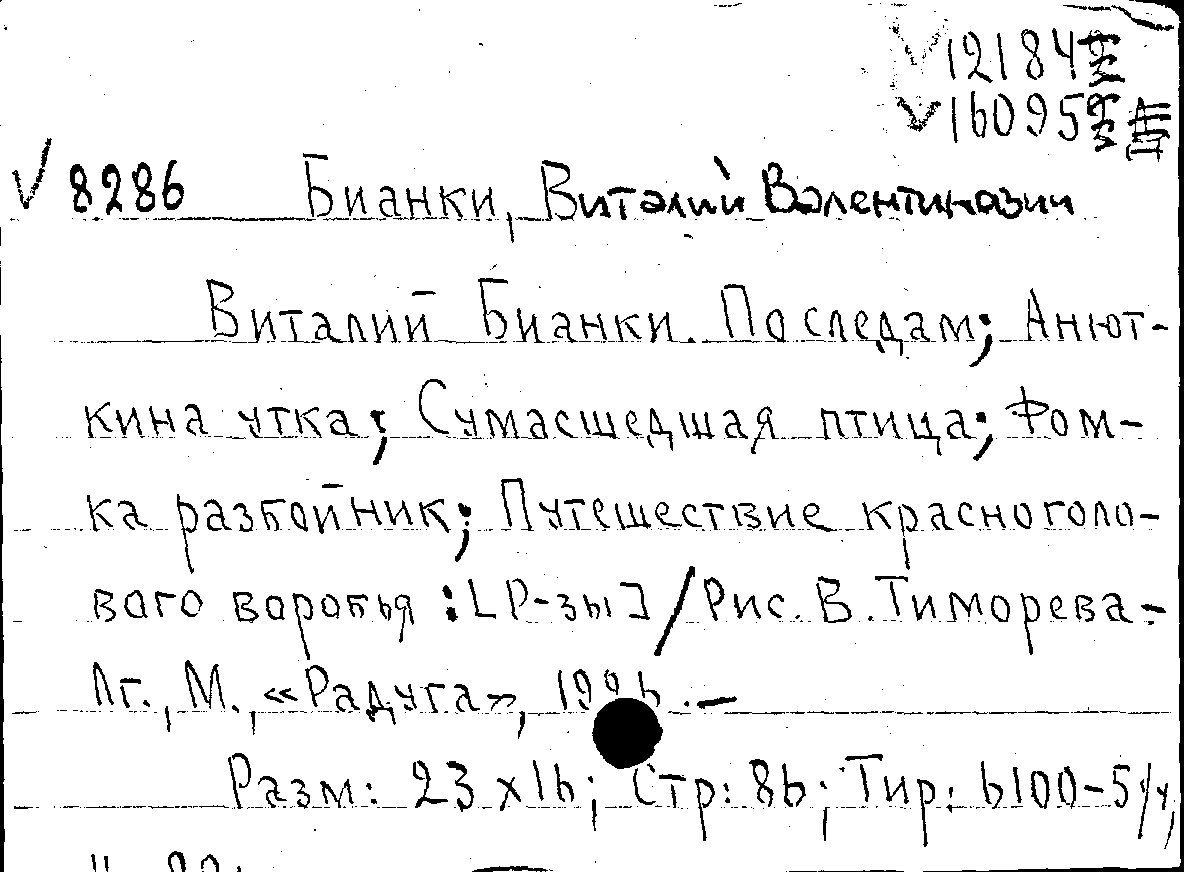 121843
160953
8286 Бианки, Виталий Валентинович
Виталий Бианки. По следам; Анют-
кина утка; Сумасшедшая птица; Фом-
ка разбойник; Путешествие красноголо-
вого воробья : [Р-зы] / Рис. В. Тиморева-
Лг., М., «Радуга», 1926.—
Разм: 23 x 16; Стр: 86; Тир: 6100-5